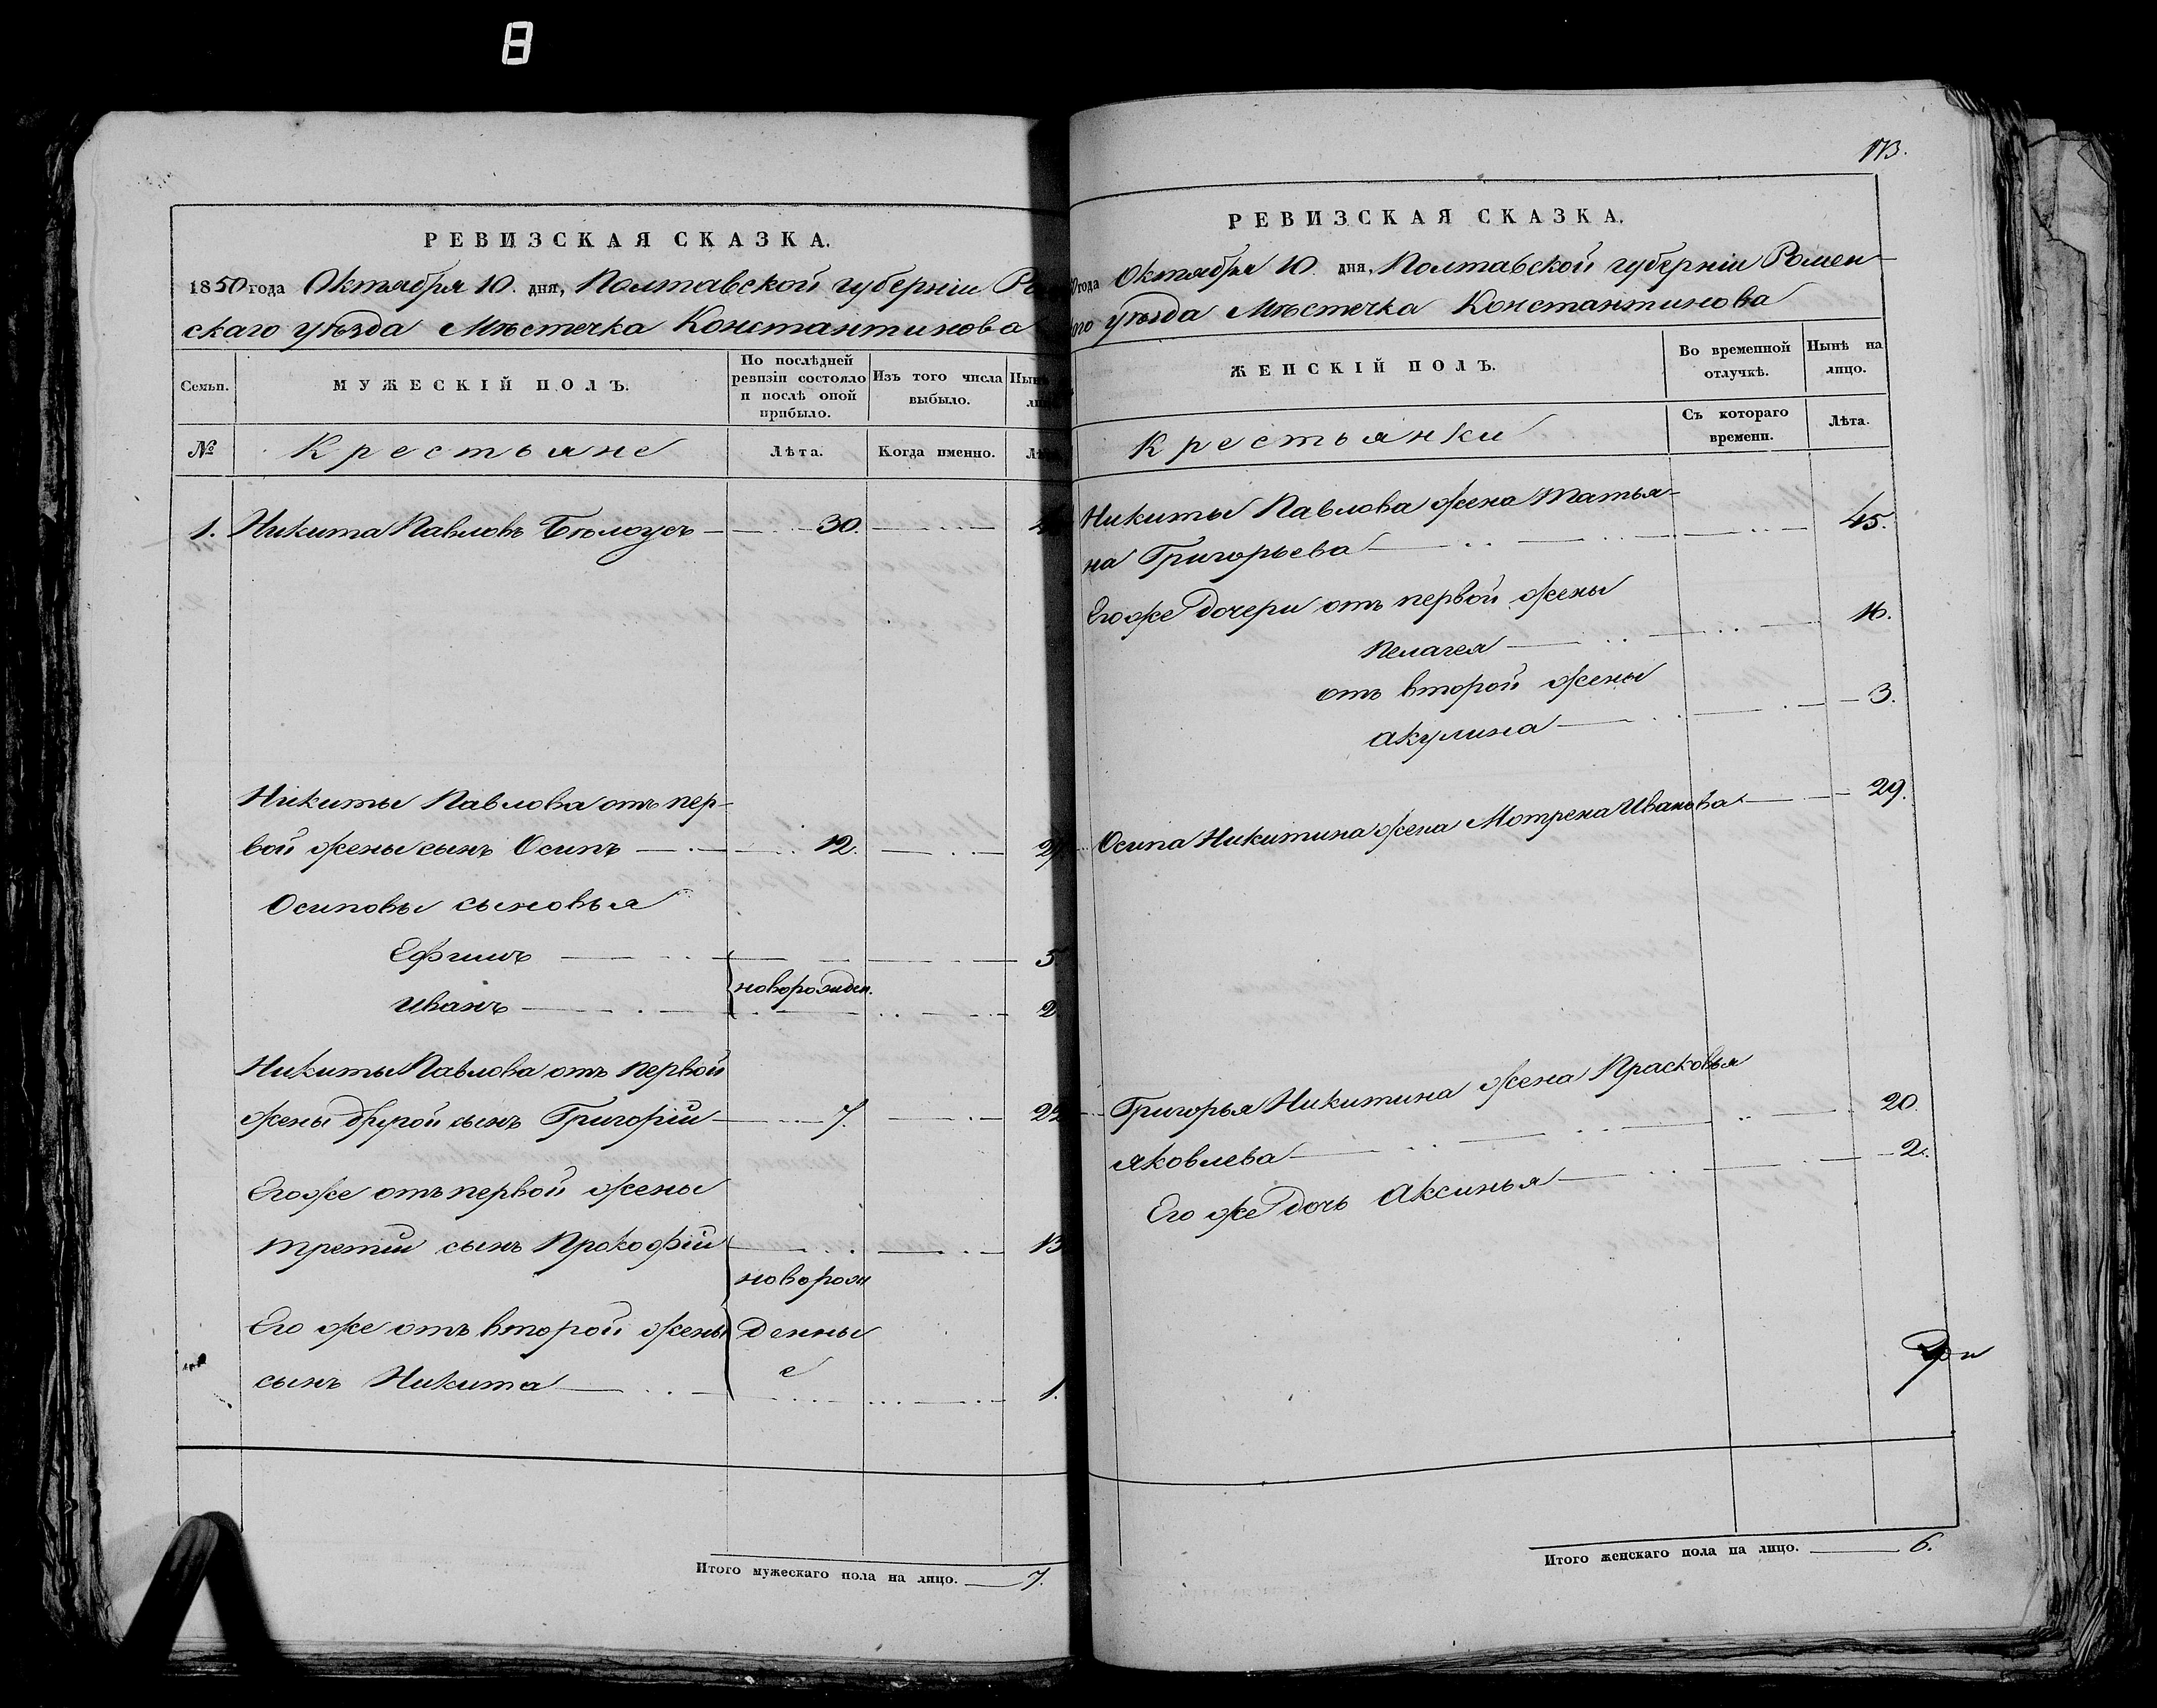 8
РЕВИЗСКАЯ СКАЗКА.
1850 года Октября 10. дня, Полтавской губерніи
скаго уѣзда Мѣстечка Константинова
Семьи.
МУЖЕСКІЙ ПОЛЪ.
По послѣдней ревизіи состояло и послѣ оной прибыло.
Изъ того числа выбыло.
№
Крестьяне
Лѣта.
Когда именно.
1. Никита Павловъ Бѣлоусъ 30.
Никиты Павлова отъ пер-
вой жены сынъ Осипъ 12. 27
Осиповы сыновья
Ефимъ 5.
новорожден.
Иванъ 2
Никиты Павлова отъ первой
жены другой сынъ Григорій 7. 22
Его же отъ первой жены
третій сынъ Прокофій 13
новорож
Его же отъ второй жены денны
е
сынъ Никита 1.
Итого мужескаго пола на лицо. 7.
173.
РЕВИЗСКАЯ СКАЗКА.
года Октября 10. дня, Полтавской губерніи Ромен-
уѣзда Мѣстечка Константинова
ЖЕНСКІЙ ПОЛЪ.
Во временной отлучкѣ.
Нынѣ на лицо.
Крестьянки
Съ котораго времени.
Лѣта.
Никиты Павлова жена Татья-
на Григорьева 45.
Его же дочери отъ первой жены
Пелагея 16.
отъ второй жены
Акулина 3.
Осипа Никитина жена Мотрена Иванова 29.
Григорья Никитина жена Прасковья
Яковлева 20
Его же дочь Аксинья 2.
Итого женскаго пола на лицо. 6.